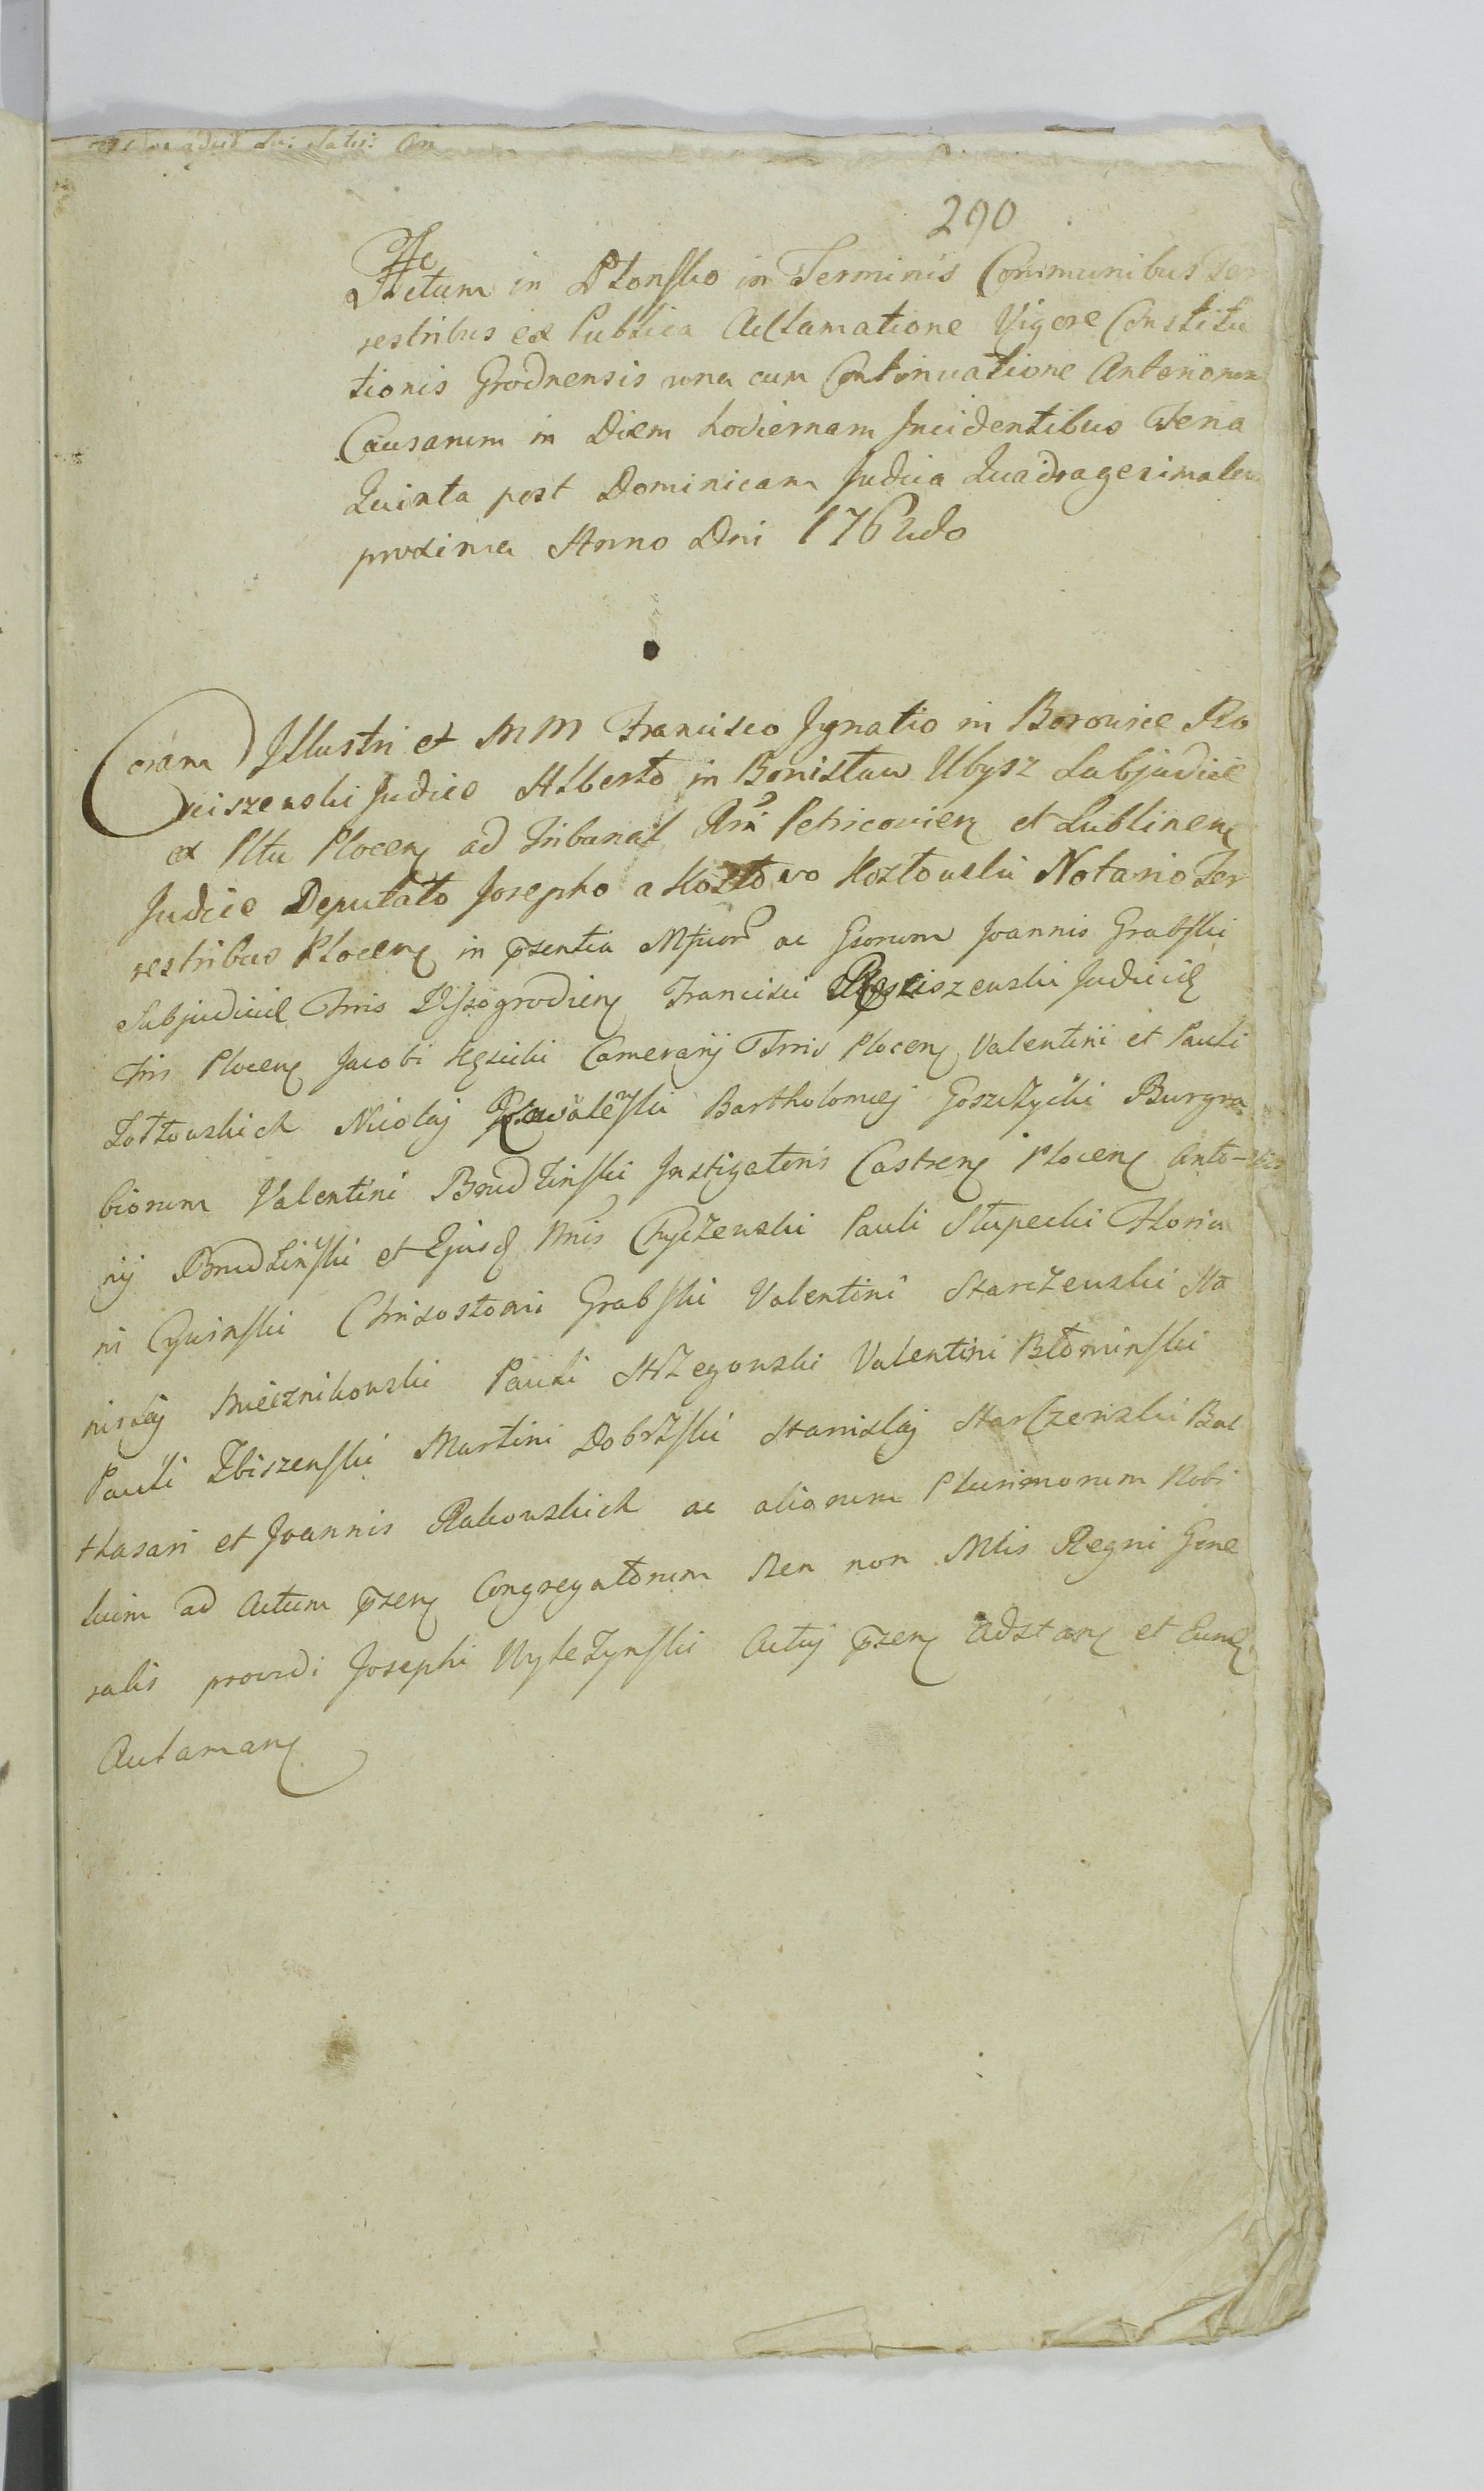 290
Actum in Płonsko in Terminis Communibus Ter
restribus ex Publica Acclamatione Vigore Constitu
tionis Grodnensis una cum Continuatione Anteriorum
Causarum in Diem hodiernam Incidentibus Feria
Quinta post Dominicam Judica Quadragesimalem
proxima Anno Dni 1762do
Coram Illustri et MM Francisco Ignatio in Borowice Ro
sciszewski Judice Alberto in Bonisław Ubysz Subjudice
ex Pltu Plocen ad Tribunal Rni Petricovien et Lublinen
Judice Deputato Josepho a Kozłowo Kozłowski Notario Ter
restribus Plocen in pzentia Mficor ac Gsorum Joannis Grabski
Subjudicis Trris Wyszogrodien Francisci Rosciszewski Judicis
Trris Plocen Jacobi Kęsicki Camerarij Trris Plocen Valentini et Pauli
Żołtowskich Nicolaj Kowalewski Bartholomej Goszczycki Burgra
biorum Valentini Brudzinski Instigatoris Castren Plocen Anto-
nij Brudzinski et Ejusd Mris Chyczewski Pauli Słupecki Floria
ni Cywinski Chrisostomi Grabski Valentini Starczewski Sta
nislaj Miecznikowski Pauli Strzegowski Valentini Błominski
Pauli Zbiszewski Martini Dobrzski Stanislaj Starczewski Bal
thasari et Joannis Rakowskich ac aliorum Plurimorum Nobi
lium ad Actum pzen Congregatorum Nec non Mlis Regni Gene
ralis providi Josephi Wyležynski Actuj pzen adstan et Eund
Acclaman